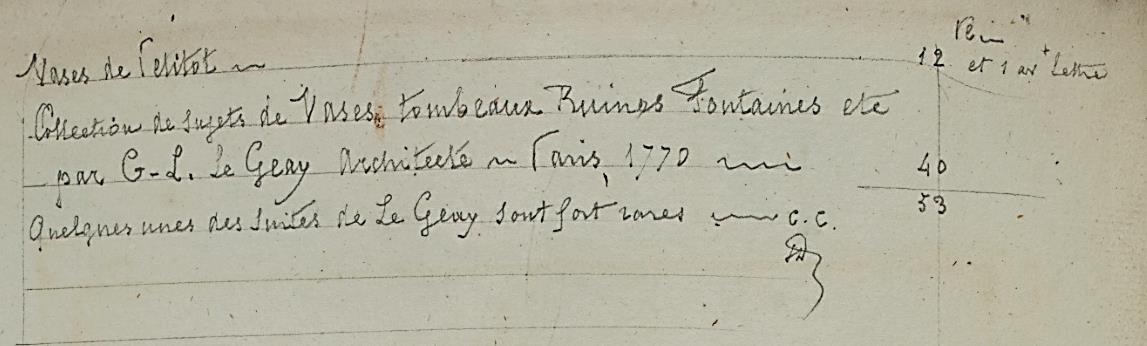 Vases de Petitot 12 et 1 avt Lettre
Collection de sujets de Vases, tombeaux Ruines Fontaines etc
par G-L. Le Geay Architecte Paris, 1770 40
53
Quelques unes des suites de Le Geay sont fort rares c.c.